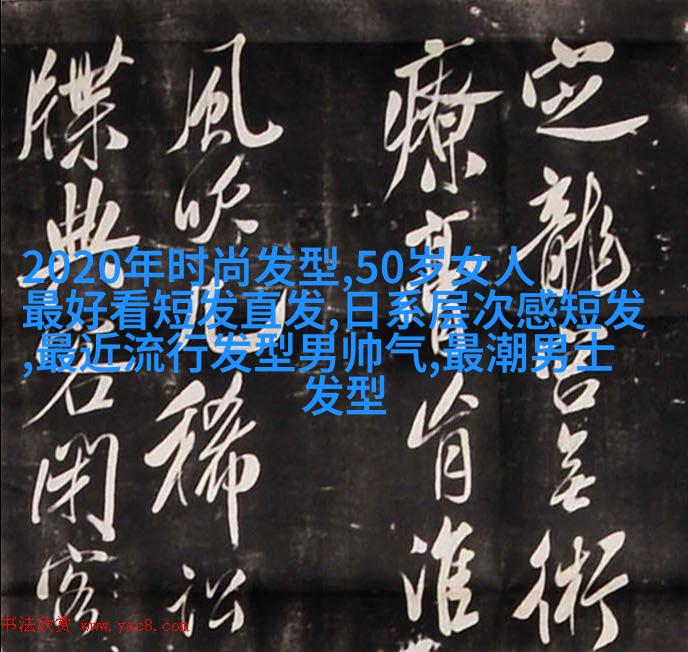 2020年时尚发型,50岁女人
最好看短发直发,日系层次感短发
,最近流行发型男帅气,最潮男士
发型
龍無術
療膏肓
風吹稀訟
牒典客
书法欣赏 www.yac8.com